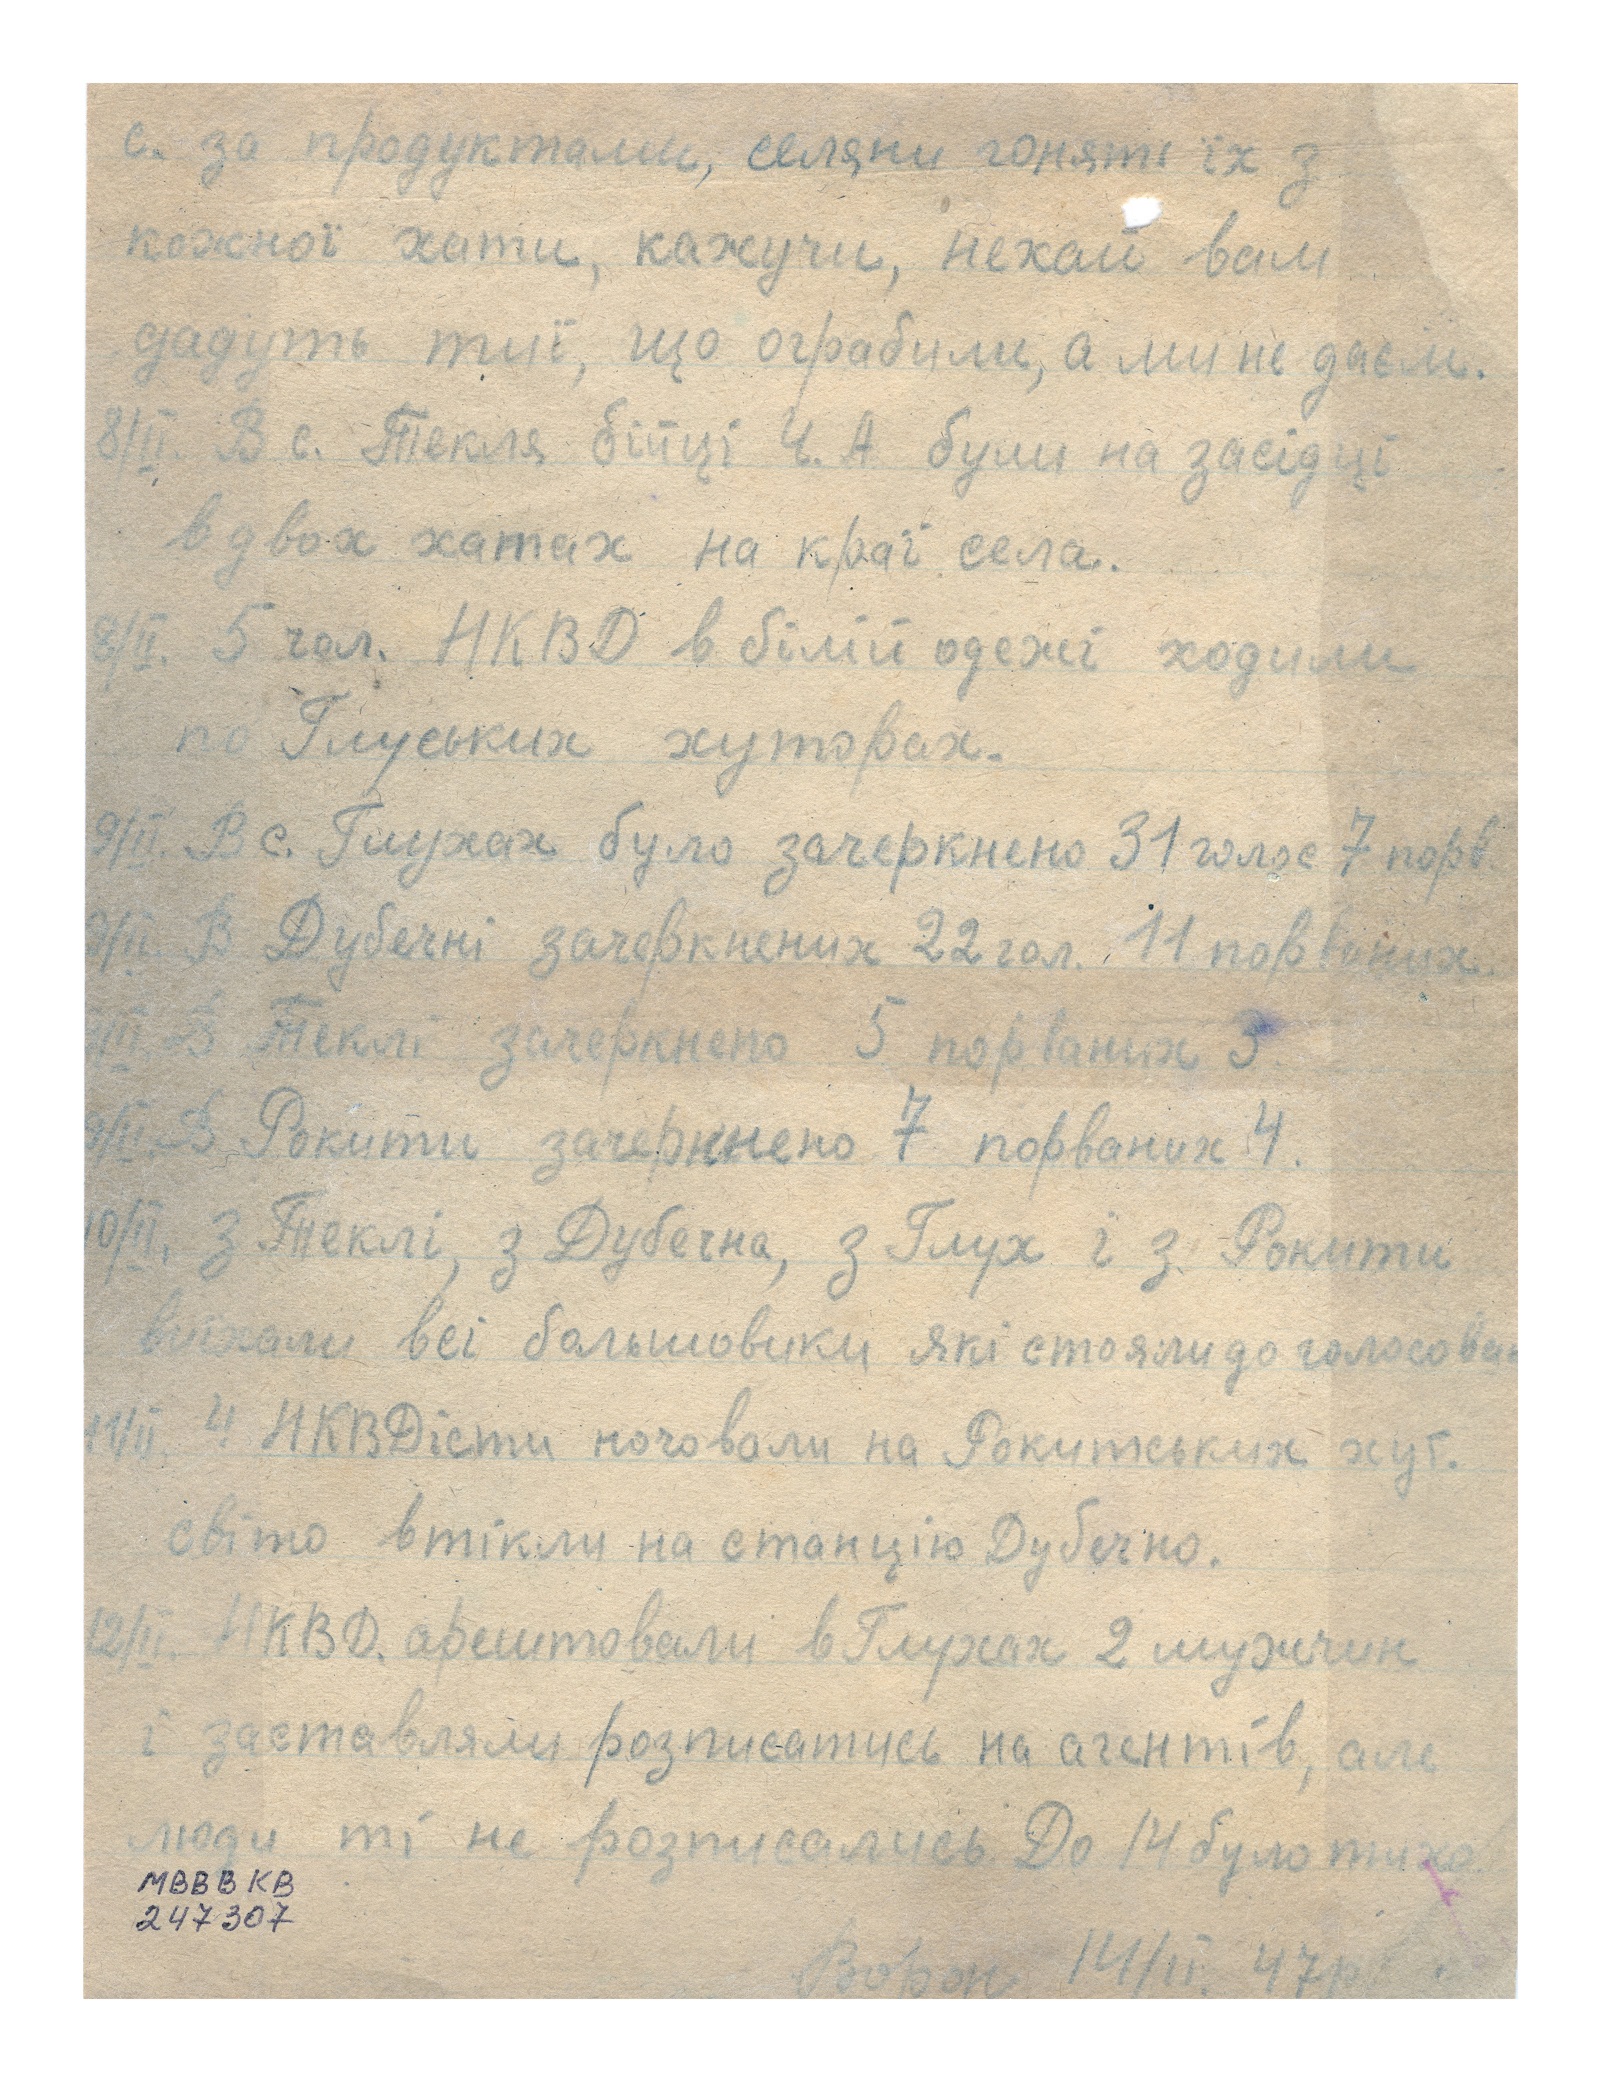 с. за продуктами, селяни гонять їх з
кожної хати, кажучи, нехай вам
дадуть тиї, що ограбили, а ми не даєм.
8/ІІ. В с. Текля бійці Ч. А були на засідці
в двох хатах на краї села.
8/ІІ. 5 чол. НКВД в білій одежі ходили
по Глуських хуторах.
9/ІІ. В с. Глухах було зачеркнено 31 голос 7 порв.
9/ІІ. В Дубечні зачеркнених 22 гол. 11 порваних.
9/ІІ. В Теклі зачеркнено 5 порваних 3.
9/ІІ. В Рокити зачеркнено 7 порваних 4.
10/ІІ. з Теклі, з Дубечна, з Глух і з Рокити
виїхали всі большовики які стояли до голосован
11/ІІ. 4 НКВДісти ночовали на Рокитських хут.
світо втікли на станцію Дубечно.
12/ІІ. НКВД. арештовали в Глухах 2 мужчин
і заставляли розписатись на агентів, але
люди ті не розписались. До 14 було тихо.
МВВВ КВ
247307
Ворон 14/ІІ. 47р